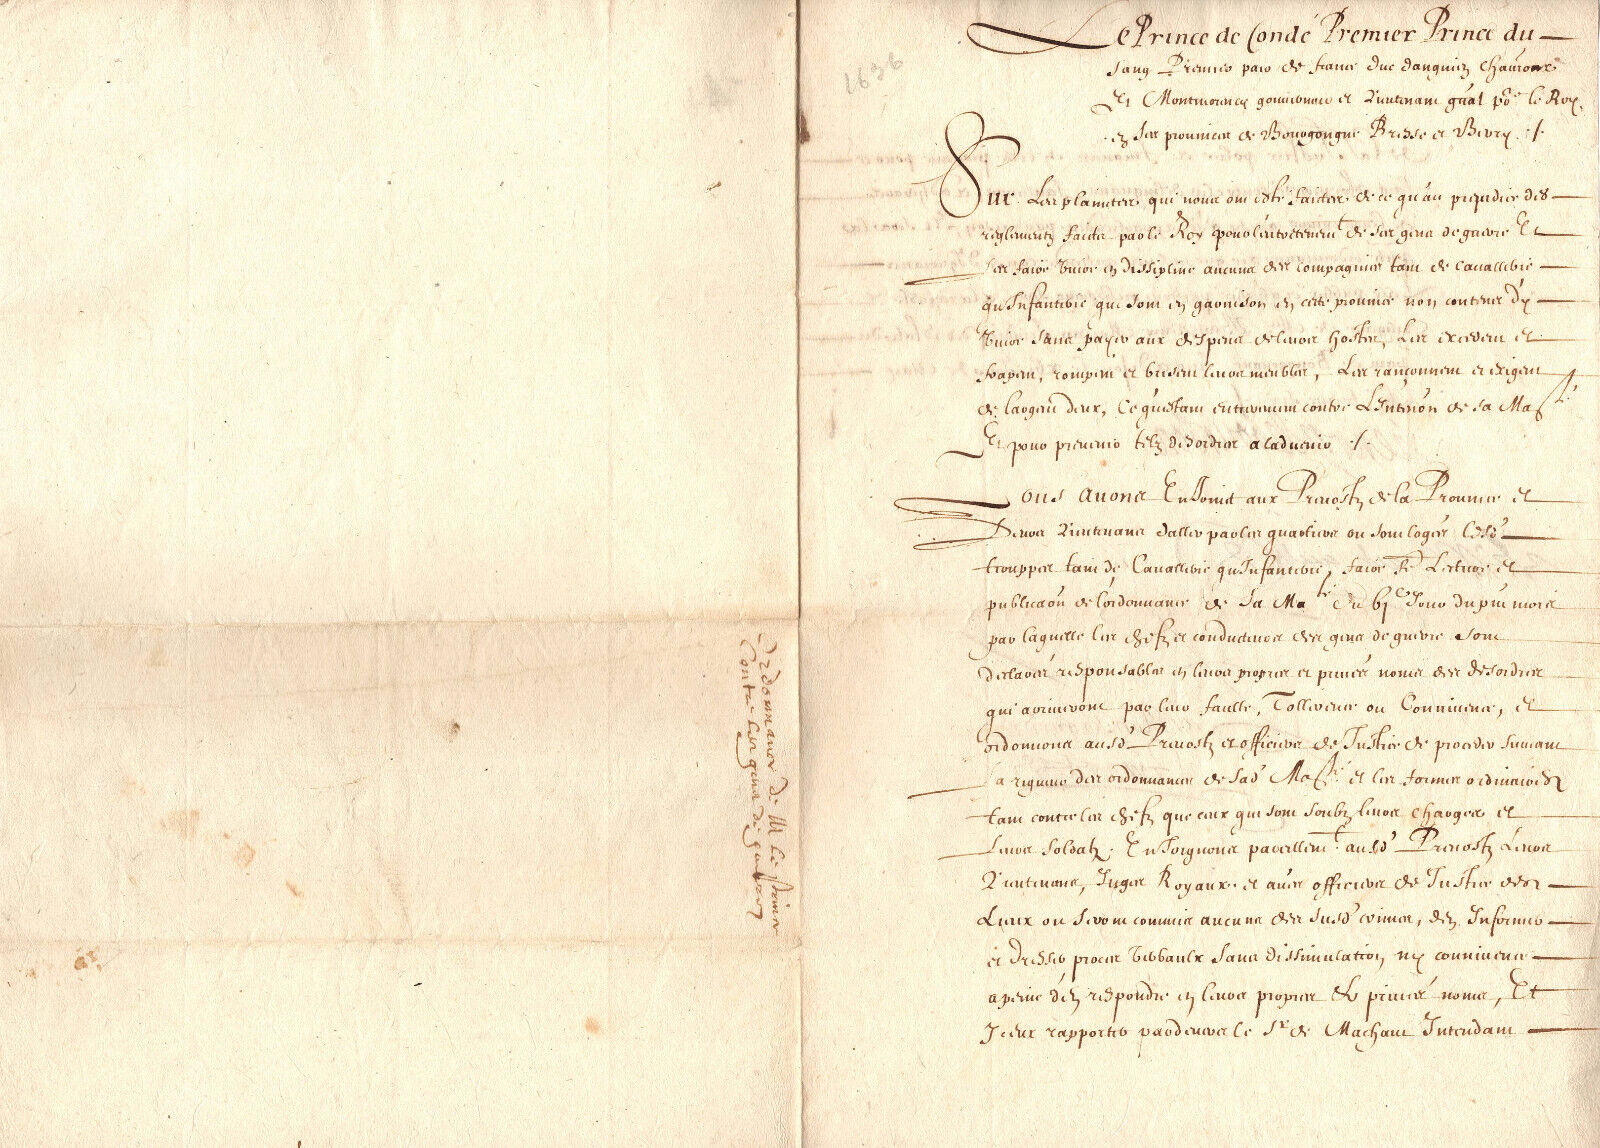 1636
Le Prince de Condé Premier Prince du
sang Premier pair de france duc danguien Chauroux
Et Montmorency gouverneur et Lieutenant gnal por le Roy
en ses provinces de Bourgongne Bresse et Berry ./.
Sur Les plaintes qui nous ont esté faictes de ce qu'au prejudice des
reglementz faicts par le Roy pour l'entretenemt de ses gens de guerre Et
Les faire vivre en dissipline aucuns des compagnies tant de cavallerie
qu'Infanterie qui sont en garnison en ceste province non contens d'y
vivre sans payer aux despens de leurs hostes, Les excedent et
frapent, rompent et brisent leurs meubles, Les rançonnent et exigent
de largent deux, Ce questant entierement contre L'Intention de sa Maté
Et pour prevenir telz desordres a ladvenir ./.
ous avons Enjoinct aux Prevostz de la Province et
Leurs Lieutenans daller par les quartiers ou sont logés lesd
trouppes tant de Cavallerie qu'Infanterie, faire fe Lecture et
publicaon de lordonnance de sa Maté du bje Jour du pnt mois
par laquelle les chefz et conducteurs des gens de guerre sont
declarés responsables en leurs propres et privés noms des desordres
qui arriveront par leur faulte, Tollerence ou Connivence, et
ordonnons ausd Prevostz et officiers de Justice de proceder suivant
La rigueur des ordonnances de sad Maté et les formes ordinaires
tant contre les chefz que ceux qui sont soubz leurs charges et
Leurs soldatz. Enjoignons pareillemt ausd Prevostz Leurs
Lieutenans, Juges Royaux et aues officiers de Justice des
Lieux ou seront commis aucuns des susd crimes, den Informer
et dresser proces verbaulx sans dissimulation ny connivence
a peine d'en respondre en leurs propres et privés noms, Et
Iceux rapporter pardevers le Sr de Machaut Intendant
Ordonnance de M le prince
Contre les gens de guerre